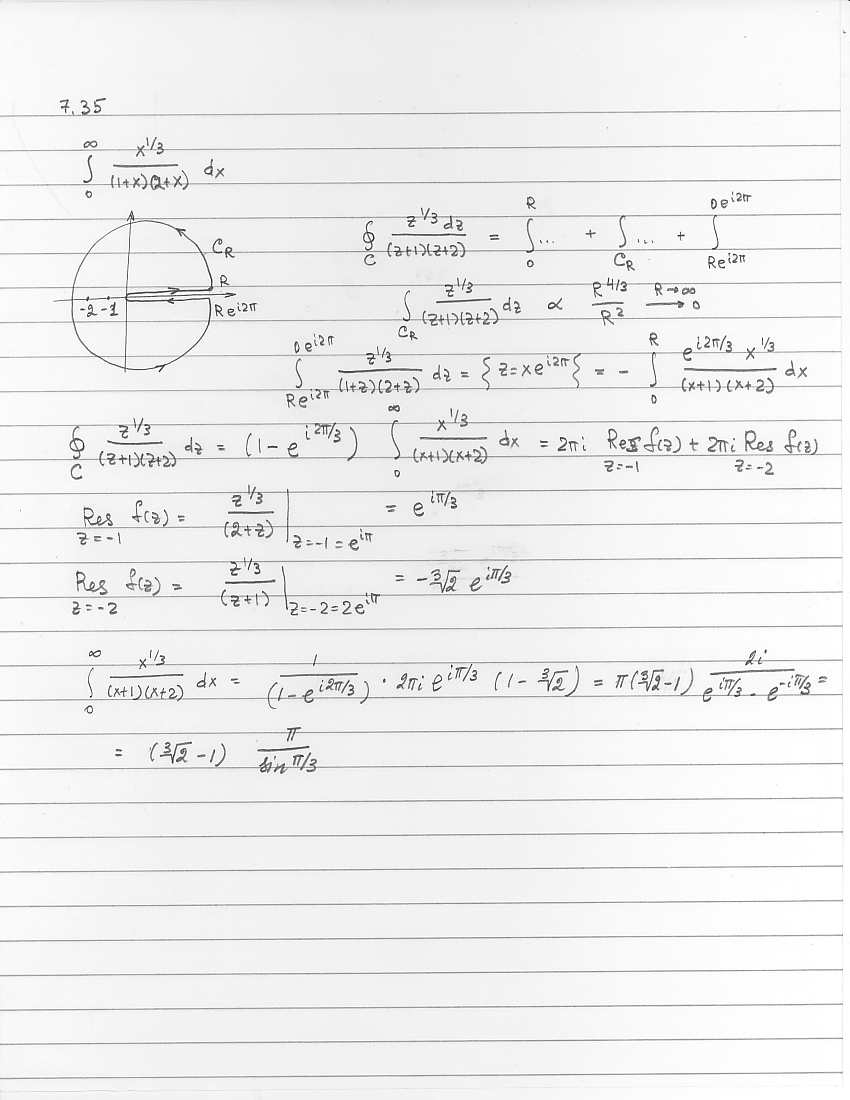 7.35
∫₀^∞ x^{1/3} / (1+x)(2+x) dx
C_R
R
-2 -1
Re^{i2π}
∮_C z^{1/3} dz / (z+1)(z+2) = ∫₀^R ... + ∫_{C_R} ... + ∫_{Re^{i2π}}^{0e^{i2π}}
∫_{C_R} z^{1/3} / (z+1)(z+2) dz ∝ R^{4/3} / R² →^{R→∞} 0
∫_{Re^{i2π}}^{0e^{i2π}} z^{1/3} / (1+z)(2+z) dz = {z=xe^{i2π}} = - ∫₀^R e^{i2π/3} x^{1/3} / (x+1)(x+2) dx
∮_C z^{1/3} / (z+1)(z+2) dz = (1-e^{i2π/3}) ∫₀^∞ x^{1/3} / (x+1)(x+2) dx = 2πi Res_{z=-1} f(z) + 2πi Res_{z=-2} f(z)
Res_{z=-1} f(z) = z^{1/3} / (2+z) |_{z=-1=e^{iπ}} = e^{iπ/3}
Res_{z=-2} f(z) = z^{1/3} / (z+1) |_{z=-2=2e^{iπ}} = -∛2 e^{iπ/3}
∫₀^∞ x^{1/3} / (x+1)(x+2) dx = 1 / (1-e^{i2π/3}) · 2πi e^{iπ/3} (1-∛2) = π(∛2-1) 2i / e^{iπ/3} - e^{-iπ/3} =
= (∛2-1) π / sin π/3